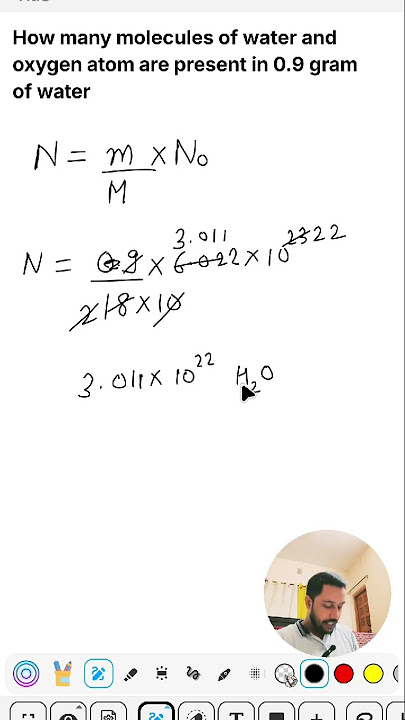 How many molecules of water and
oxygen atom are present in 0.9 gram
of water
N = m/M × N₀
3.011
N = 0.9/18×10 × 6.022 × 10²³ 22
2
3.011 × 10²² H₂O